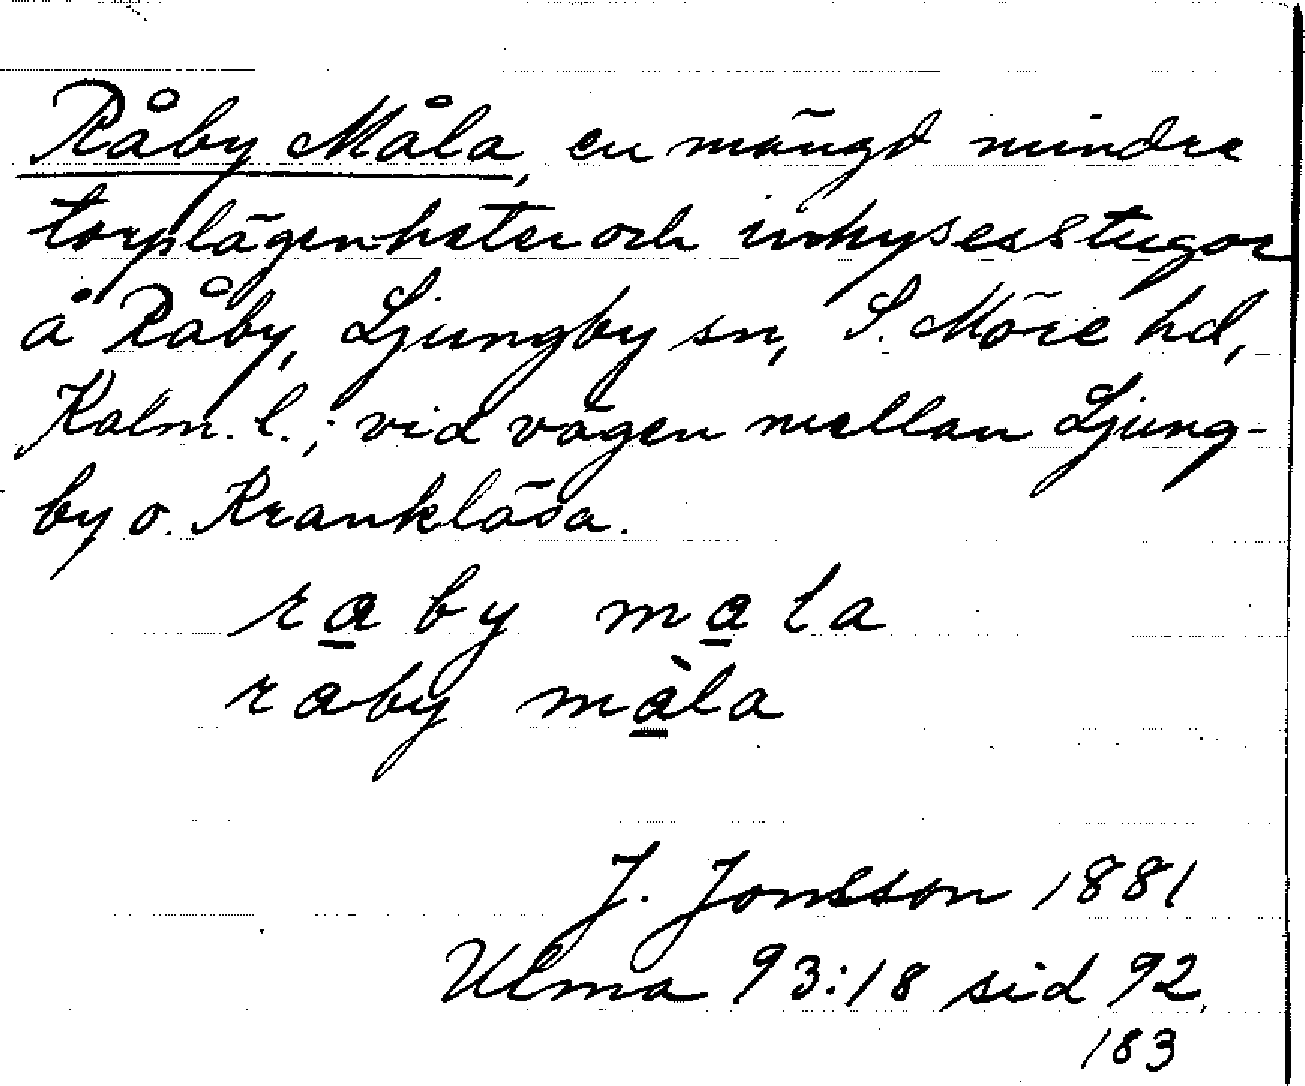 Råby Måla, en mängd mindre
torplägenheter och inhysesstugor
å Råby, Ljungby sn, S. Möre hd,
Kalm. l.; vid vägen mellan Ljung-
by o. Krankläsa.
raby mala
raby màla
J. Jonsson 1881
Ulma 93:18 sid 92
183